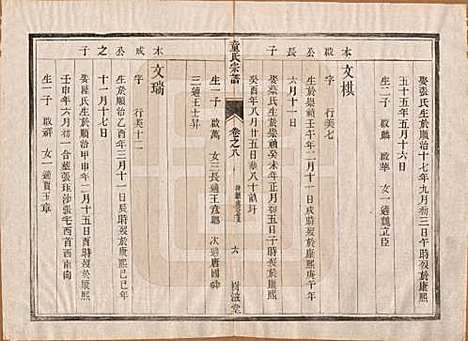 娶張氏生於順治十七年九月初三日午時歿於康熙
五十五年五月十六日
生二子 啟麟 啟華 女一適魏立臣
本 文棋
啟 字 行英七
公 生於崇禎壬午年二月十一日戌時歿於康熙
長 六月十一日
子 娶葉氏生於崇禎癸未年正月初五日子時歿於康熙
癸酉年八月廿五日
生一子 啟萬 女三長適王 次適唐國
三適王士昇
童氏宗譜
卷之八
六
木 文瑞
成 字 行英十二
公 生於順治乙酉年三月十一日辰時歿於康熙己巳年
之 十一月十七日
子 娶陳氏生於順治甲申年二月十五日酉時歿於康熙
壬申年六月初一合葬張珠沙張宅酉首西南向
生一子 啟祥 女一適賈玉章